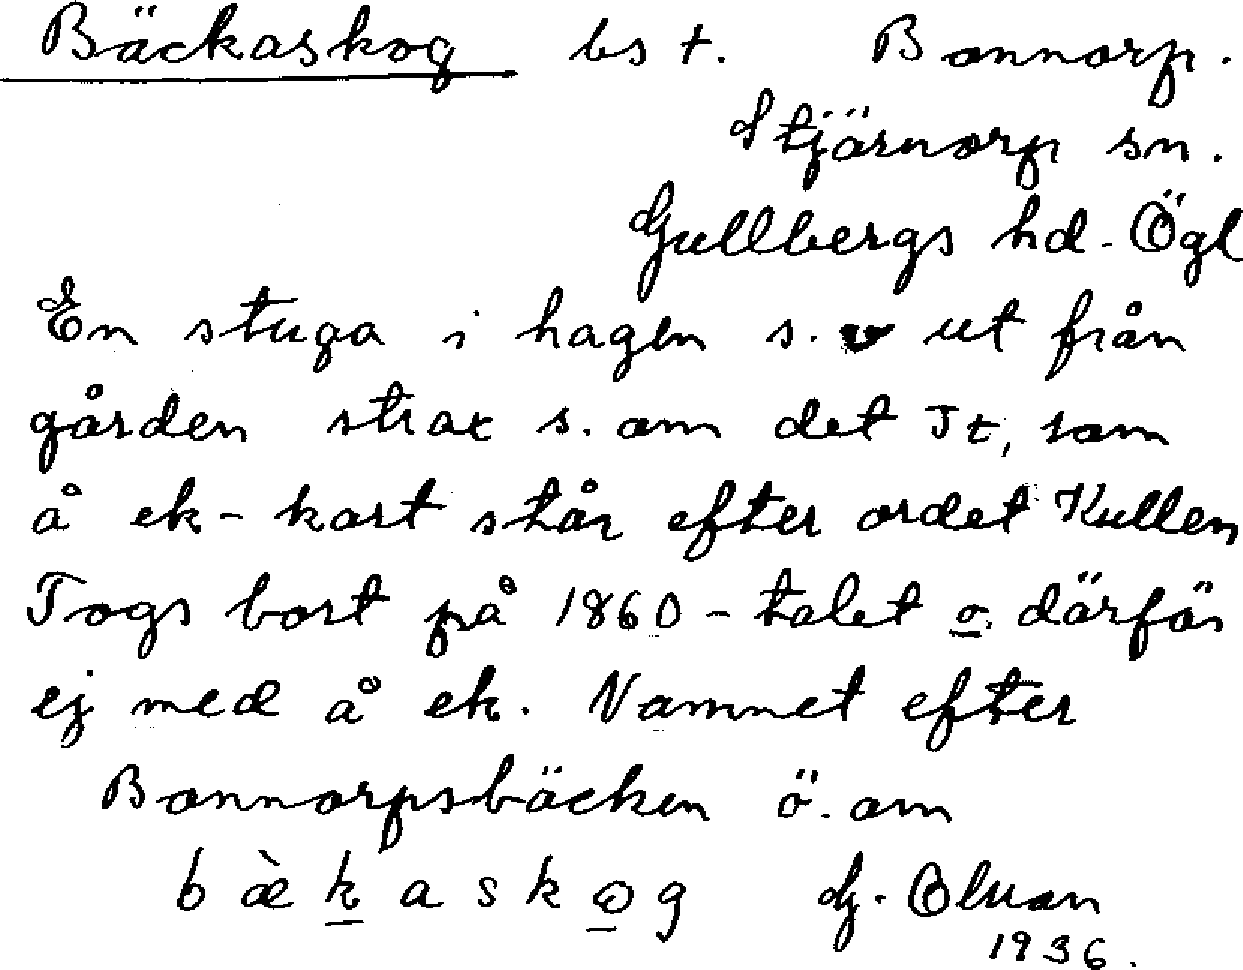 Bäckaskog bs t. Bonnorp.
Stjärnorp sn.
Gullbergs hd. Ögl
En stuga i hagen s. v ut från
gården strax s. om det Tt, som
å ek-kart står efter ordet Kullen
Togs bort på 1860-talet o. därför
ej med å ek. Namnet efter
Bonnorpsbäcken ö. om
b æ̀ k a s k o g G. Olson
1936.